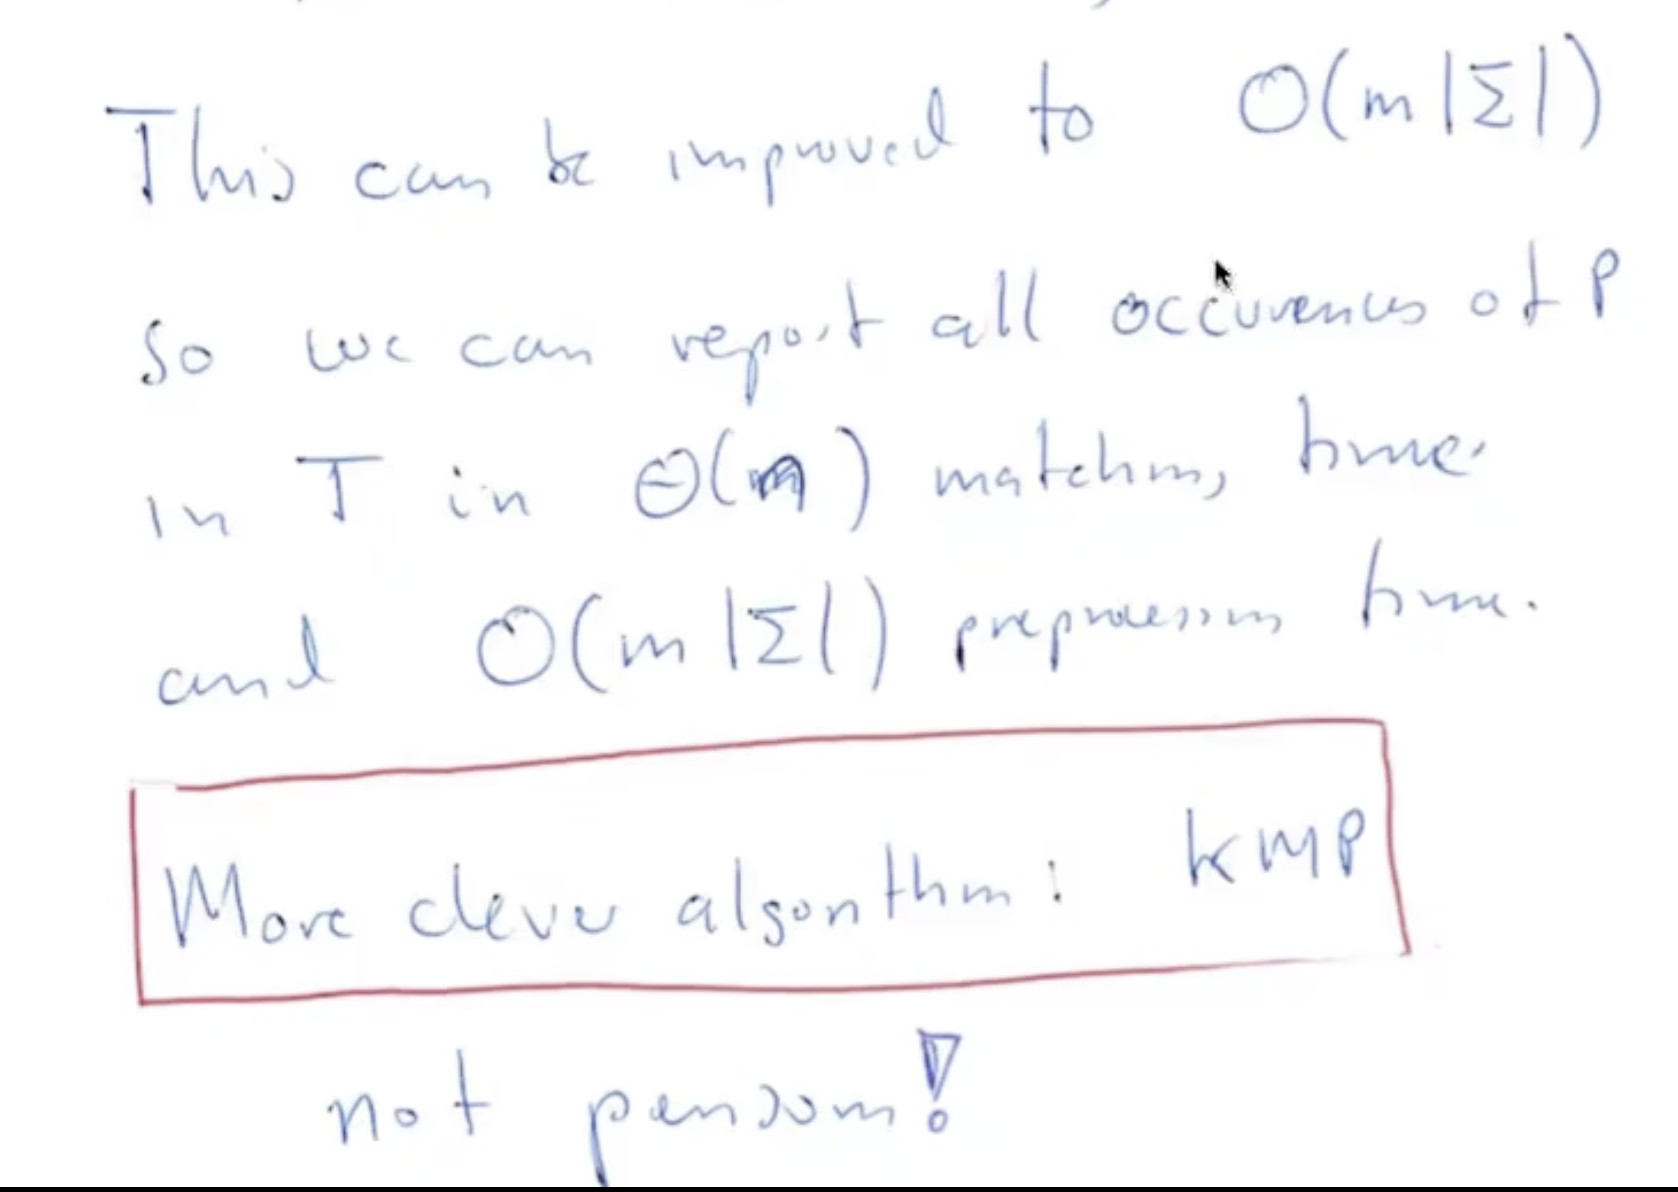 This can be improved to O(m|Σ|)
so we can report all occurences of P
in T in Θ(n) matching time
and O(m|Σ|) preprocessing time.
More clever algorithm: KMP
not pensum!